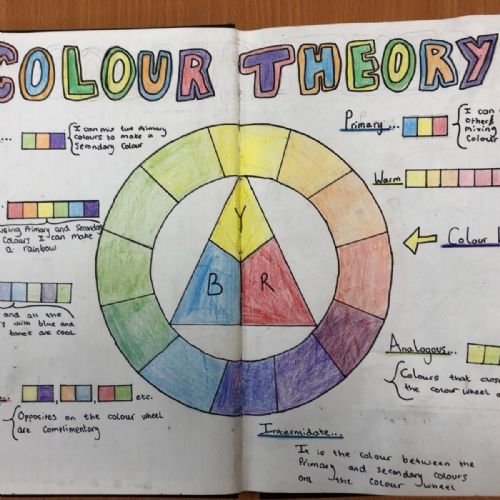 COLOUR THEORY
I can mix two Primary
colours to make a
Secondary Colour
using Primary and
Colours I can make
a rainbow
and all the
with blue and
tones are cool
etc.
Opposites on the colour wheel
are Complimentary
Y
B R
Primary...
I can
other
mixing
colour
Warm
Colour
Analogous...
Colours that
the colour wheel
Intermediate...
It is the colour between the
Primary and secondary colours
on the colour wheel